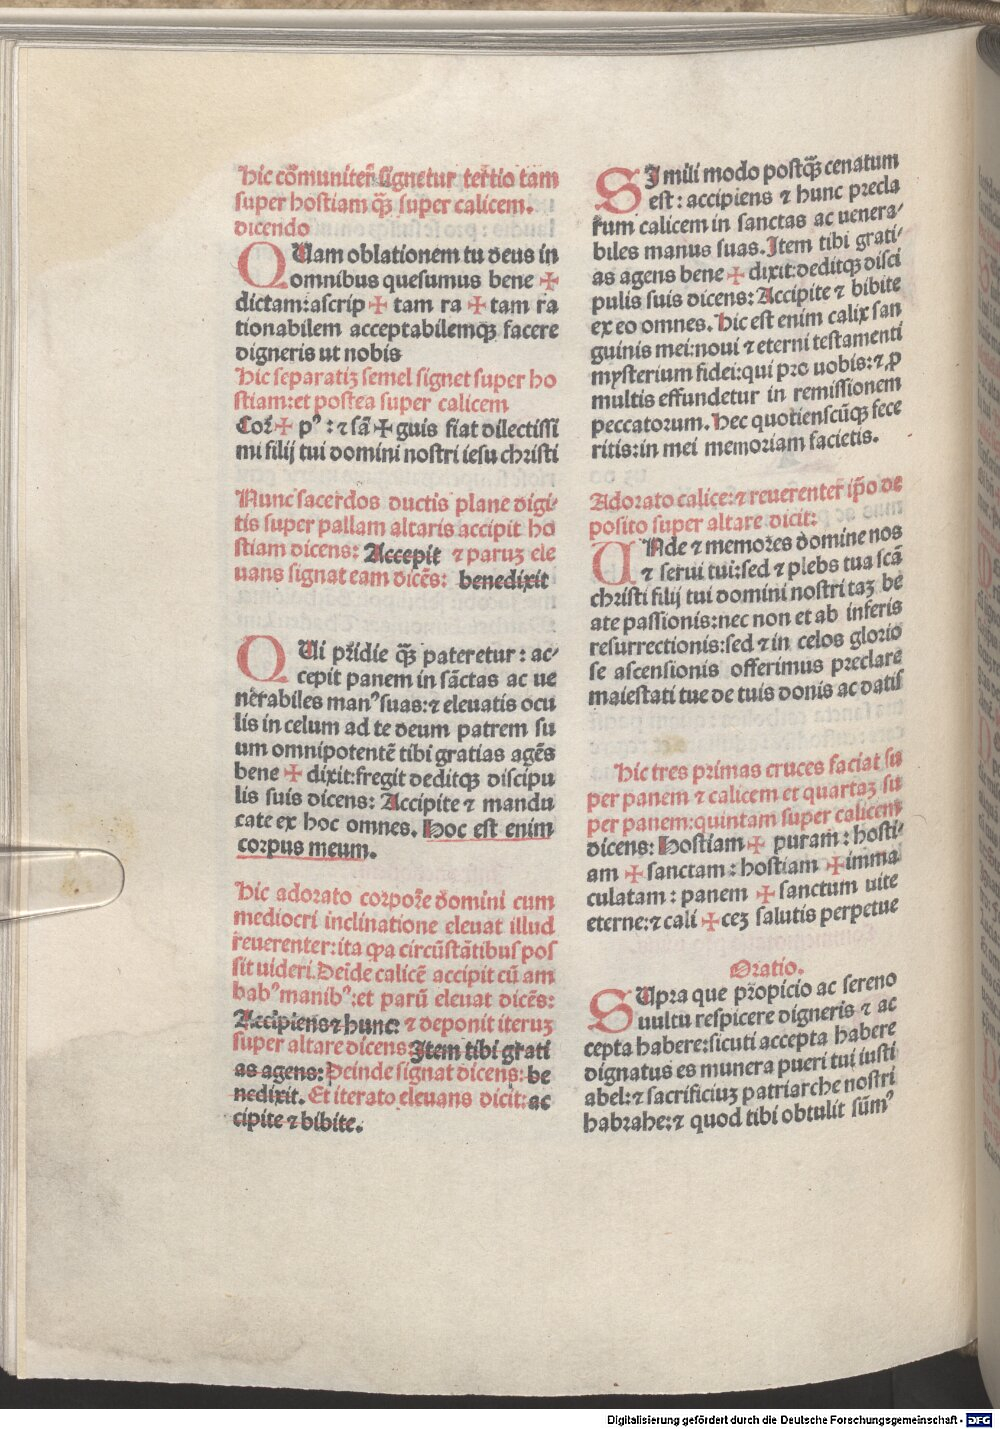 Hic cõmuniter̃ signetur tertio tam
super hostiam q̃ꝫ super calicem.
dicendo
QUam oblationem tu deus in
omnibus quesumus bene ✠
dictam:ascrip ✠ tam ra ✠ tam ra
tionabilem acceptabilemqꝫ facere
digneris ut nobis
Hic separatiꝫ semel signet super ho
stiam:et postea super calicem
Cor̃ ✠ pꝰ : ⁊ sã ✠ guis fiat dilectissi
mi filij tui domini nostri iesu christi
Nunc sacerdos ductis plane digi⸗
tis super pallam altaris accipit ho
stiam dicens: Accepit ⁊ paruꝫ ele
uans signat eam dicẽs: benedixit
QUi pridie q̃ꝫ pateretur : ac⸗
cepit panem in sãctas ac ue
nerabiles manꝰ suas:⁊ eleuatis ocu
lis in celum ad te deum patrem su
um omnipotentẽ tibi gratias agẽs
bene ✠ dixit:fregit deditqꝫ discipu
lis suis dicens: Accipite ⁊ mandu
cate ex hoc omnes. Hoc est enim
corpus meum.
Hic adorato corpore domini cum
mediocri inclinatione eleuat illud
reuerenter:ita qꝫ a circũstãtibus pos
sit uideri.Deĩde calicẽ accipit cũ am
babꝰ manibꝰ:et parũ eleuat dicẽs:
Accipiens ⁊ hunc: ⁊ deponit iteruꝫ
super altare dicens:Item tibi grati
as agens: Deinde signat dicens: be
nedixit. Et iterato eleuans dicit: ac
cipite ⁊ bibite.
SImili modo postq̃ꝫ cenatum
est : accipiens ⁊ hunc precla
rum calicem in sanctas ac uenera⸗
biles manus suas.Item tibi grati⸗
as agens bene ✠ dixit:deditqꝫ disci
pulis suis dicens: Accipite ⁊ bibite
ex eo omnes. Hic est enim calix san
guinis mei:noui ⁊ eterni testamenti
mysterium fidei:qui pro uobis:⁊ ꝓ
multis effundetur in remissionem
peccatorum. Hec quotienscũqꝫ fece
ritis:in mei memoriam facietis.
Adorato calice:⁊ reuerenter ip̃o de
posito super altare dicit:
UNde ⁊ memores domine nos
⁊ serui tui:sed ⁊ plebs tua scã
christi filij tui domini nostri taꝫ be
ate passionis:nec non et ab inferis
resurrectionis:sed ⁊ in celos glorio
se ascensionis offerimus preclare
maiestati tue de tuis donis ac datis
Hic tres primas cruces faciat su
per panem ⁊ calicem et quartaꝫ su
per panem:quintam super calicem
dicens: Hostiam ✠ puram : hosti⸗
am ✠ sanctam : hostiam ✠ imma
culatam : panem ✠ sanctum uite
eterne:⁊ cali ✠ ceꝫ salutis perpetue
Oratio.
SUpra que propicio ac sereno
uultu respicere digneris ⁊ ac
cepta habere:sicuti accepta habere
dignatus es munera pueri tui iusti
abel:⁊ sacrificiuꝫ patriarche nostri
habrahe:⁊ quod tibi obtulit sũmꝰ
Digitalisierung gefördert durch die Deutsche Forschungsgemeinschaft - DFG